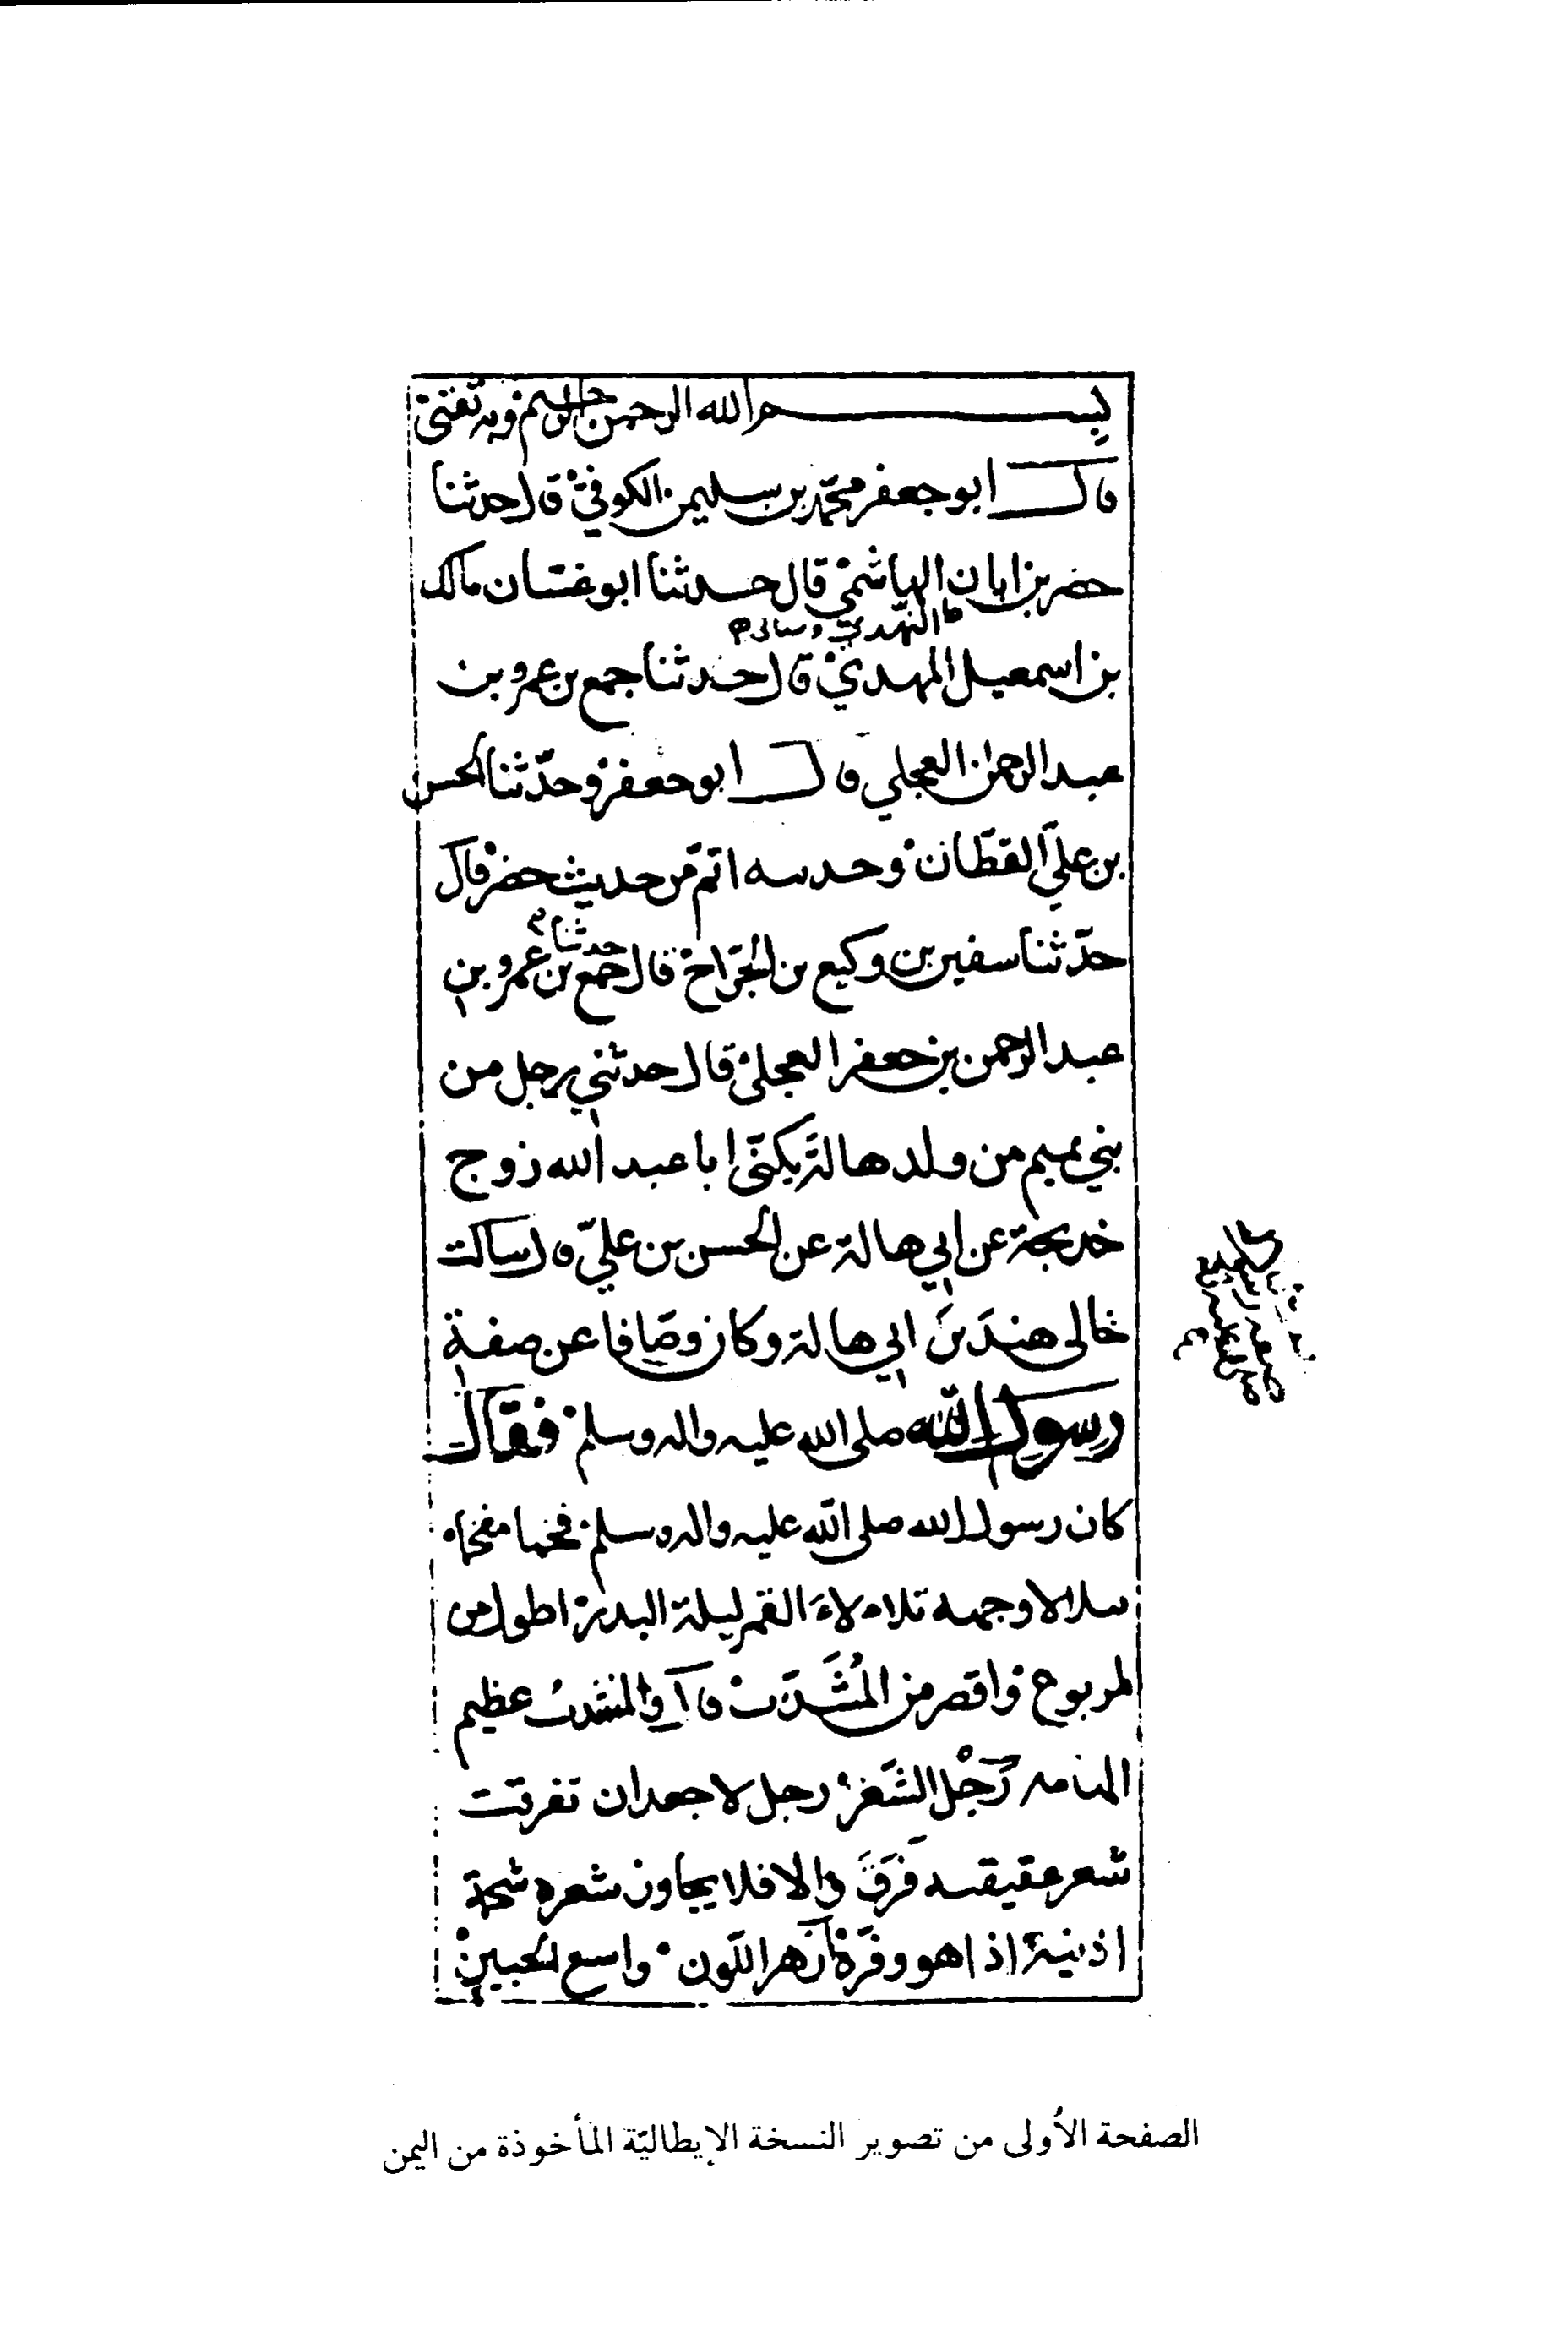 بسم الله الرحمن الرحيم وبه ثقتي
قال ابو جعفر محمد بن سليمن الكوفي قال حدثنا
خضر بن ابان الهاشمي قال حدثنا ابو غسان مالك
النهدي
بن اسمعيل المهدي قال حدثنا جميع بن عمرو بن
عبد الرحمن العجلي قال ابو جعفر وحدّثنا الحسن
بن علي القطان وحدىىه اتم من حديث خضر قال
حدثنا
حدّثنا سفين بن وكيع بن الجرّاح قال جميع بن عمرو بن
عبد الرحمن بن جعفر العجلي قال حدثني رجل من
بني تميم من ولد هالة يكنّى ابا عبد الله زوج
خديجة عن ابي هالة عن الحسن بن عليّ قال سالت
خالي هند بن ابي هالة وكان وصّافا عن صفة
رسول الله صلى الله عليه واله وسلم فقال
كان رسول الله صلى الله عليه واله وسلم فخما مفخما
يتلالا وجهه تلاءلاء القمر ليلة البدر اطول من
المربوع واقصر من المُشَذَّب قال والمشذب عظيم
الهامة رَجْل الشَعْر رجل لا جعد ان تفرقت
شعر عقيقته فَرَقَ والا فلا يجاوز شعره شحمة
اذنيه اذا هو وفّره ازهر اللّون واسع الجبين
الصفحة الأولى من تصوير النسخة الإيطاليّة المأخوذة من اليمن